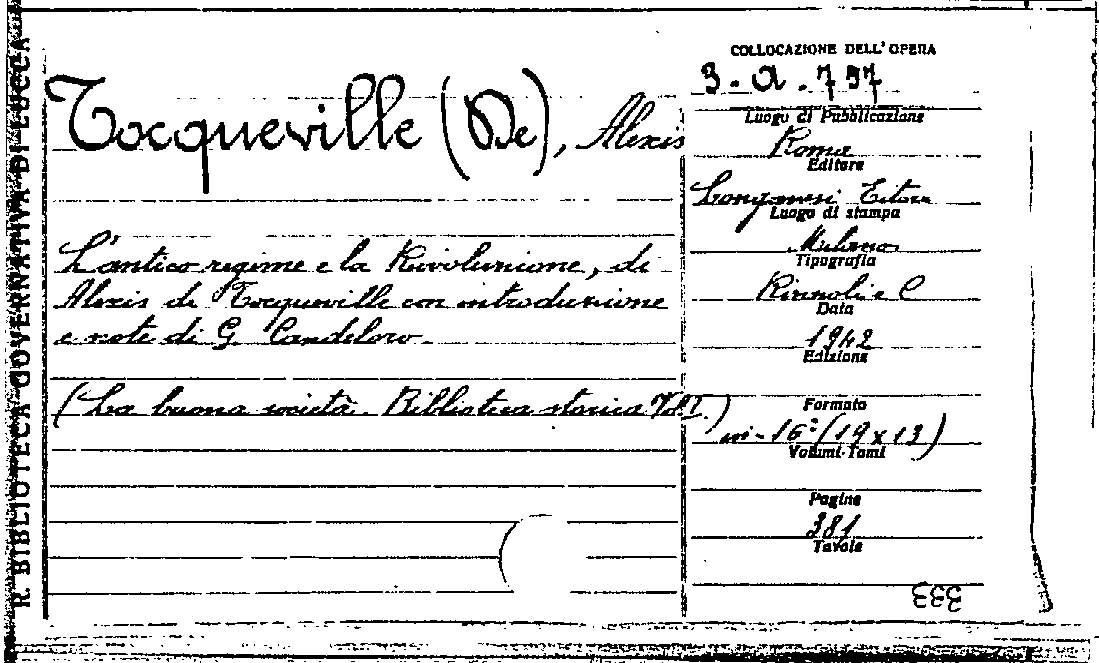 R. BIBLIOTECA GOVERNATIVA DI LUCCA
Tocqueville (De), Alexis
L'antico regime e la Rivoluzione, di
Alexis di Tocqueville con introduzione
e note di G. Candeloro.
(La buona società. Biblioteca storica Vol. I.)
COLLOCAZIONE DELL'OPERA
3 - a . 797
Luogo di Pubblicazione
Roma
Editore
Longanesi Editore
Luogo di stampa
Milano
Tipografia
Rizzoli e C
Data
1942
Edizione
Formato
in-16° (19 x 13)
Volumi-Tomi
Pagine
381
Tavole
333